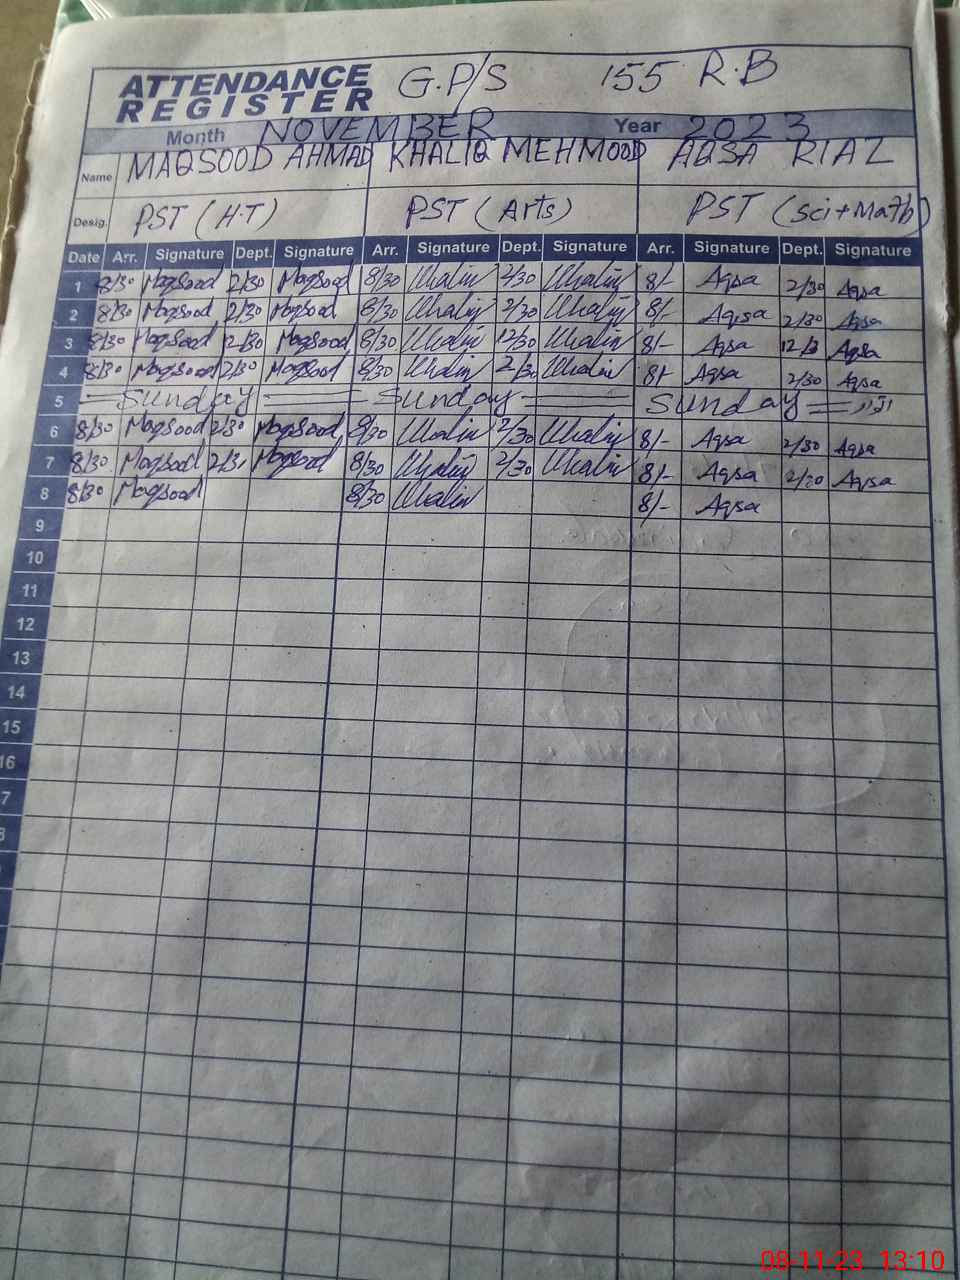 ATTENDANCE REGISTER G.P/S 155 R.B
Month NOVEMBER Year 2023
Name MAQSOOD AHMAD KHALIQ MEHMOOD AQSA RIAZ
Desig. PST (H.T) PST (Arts) PST (Sci+Math)
Date Arr. Signature Dept. Signature Arr. Signature Dept. Signature Arr. Signature Dept. Signature
1 8/30 Maqsood 2/30 Maqsood 8/30 Khaliq 2/30 Khaliq 8/- Aqsa 2/30 Aqsa
2 8/30 Maqsood 2/30 Maqsood 8/30 Khaliq 2/30 Khaliq 8/- Aqsa 2/30 Aqsa
3 8/30 Maqsood 12/30 Maqsood 8/30 Khaliq 12/30 Khaliq 8/- Aqsa 12/3 Aqsa
4 8/30 Maqsood 2/30 Maqsood 8/30 Khaliq 2/30 Khaliq 8/- Aqsa 2/30 Aqsa
5 Sunday Sunday Sunday
6 8/30 Maqsood 2/30 Maqsood 8/30 Khaliq 2/30 Khaliq 8/- Aqsa 2/30 Aqsa
7 8/30 Maqsood 2/3 Maqsood 8/30 Khaliq 2/30 Khaliq 8/- Aqsa 2/30 Aqsa
8 8/30 Maqsood 8/30 Khaliq 8/- Aqsa
9
10
11
12
13
14
15
16
7
08-11-23 13:10